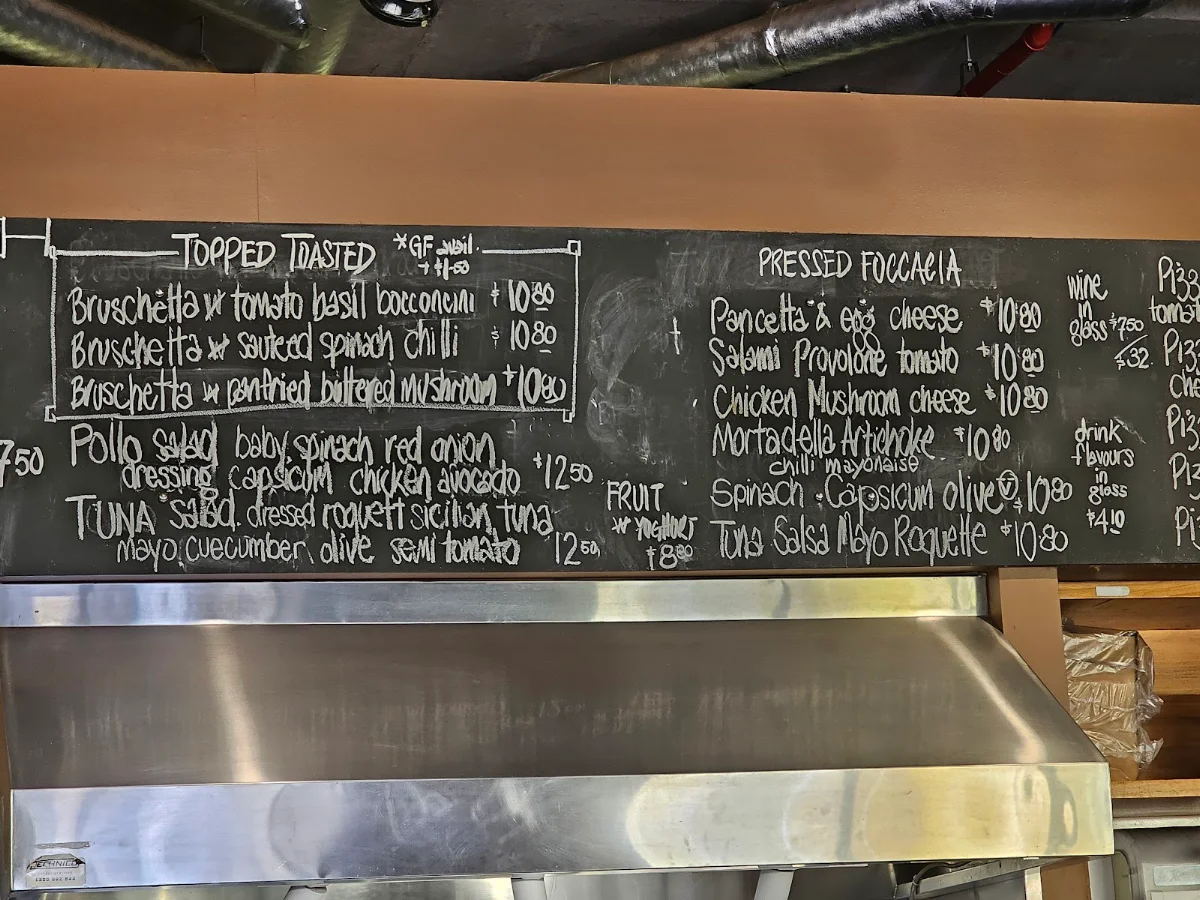 TOPPED TOASTED *GF avail.
+ $1.50
Bruschetta w tomato basil bocconcini $10.80
Bruschetta w sauteed spinach chilli $10.80
Bruschetta w panfried buttered mushroom $10.80
7.50
Pollo salad baby spinach red onion
dressing capsicum chicken avocado $12.50
TUNA salad. dressed roquett sicilian tuna
mayo cuecumber olive semi tomato 12.50
FRUIT
w YOGHURT
$8.80
PRESSED FOCCACIA
Pancetta & egg cheese $10.80
Salami Provolone tomato $10.80
Chicken Mushroom cheese $10.80
Mortadella Artichoke $10.80
chilli mayonaise
Spinach Capsicum olive V $10.80
Tuna Salsa Mayo Roquette $10.80
wine
in
glass $7.50
$32.
drink
flavours
in
glass
$4.10
TECHNICO